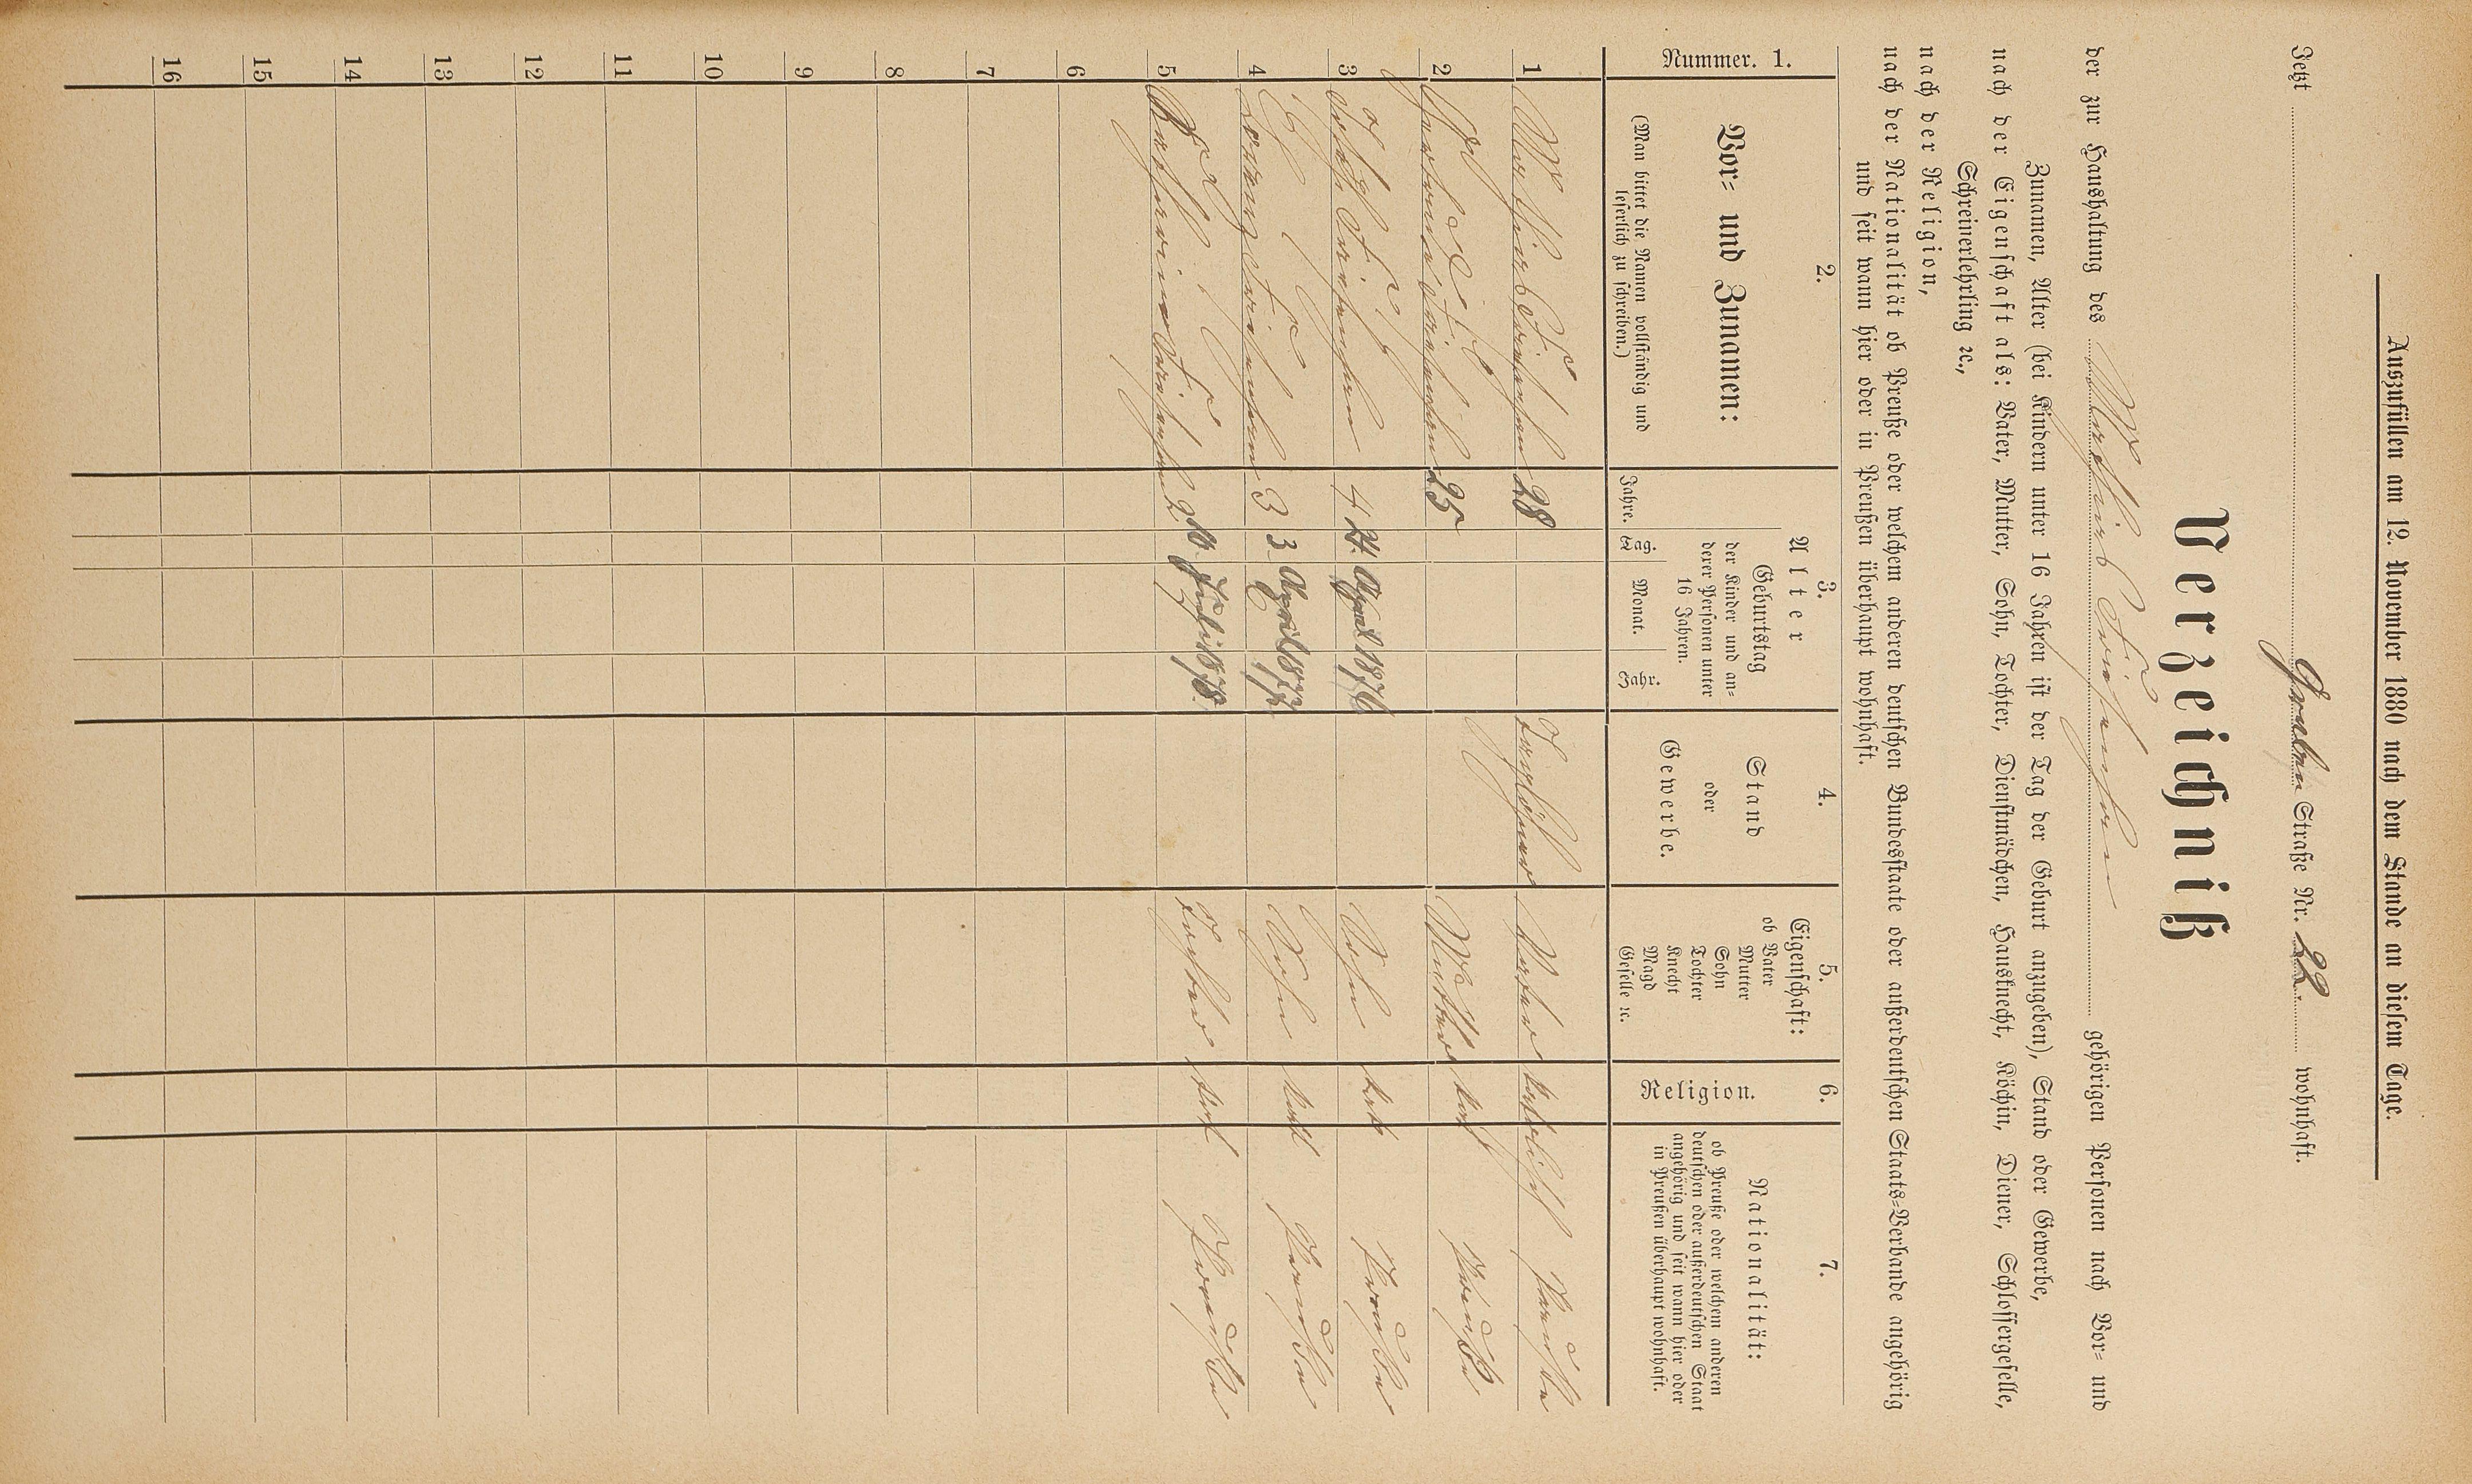 Auszufüllen am 12. November 1880 nach dem Stande an diesem Tage.
Jetzt Graben Straße Nr. 22. wohnhaft.
Verzeichniß
der zur Haushaltung des Mathias gehörigen Personen nach Vor- und
Zunamen, Alter (bei Kindern unter 16 Jahren ist der Tag der Geburt anzugeben), Stand oder Gewerbe,
nach der Eigenschaft als: Vater, Mutter, Sohn, Tochter, Dienstmädchen, Hausknecht, Köchin, Diener, Schlossergeselle,
Schreinerlehrling ꝛc.,
nach der Religion,
nach der Nationalität ob Preuße oder welchem anderen deutschen Bundesstaate oder außerdeutschen Staats-Verbande angehörig
und seit wann hier oder in Preußen überhaupt wohnhaft.
Nummer. 1.
2.
Vor- und Zunamen:
(Man bittet die Namen vollständig und
leserlich zu schreiben.)
3.
Alter
Jahre.
Geburtstag
der Kinder und an-
derer Personen unter
16 Jahren.
Tag. Monat. Jahr.
4.
Stand
oder
Gewerbe.
5.
Eigenschaft:
ob Vater
Mutter
Sohn
Tochter
Knecht
Magd
Geselle ꝛc.
6.
Religion.
7.
Nationalität:
ob Preuße oder welchem anderen
deutschen oder außerdeutschen Staat
angehörig und seit wann hier oder
in Preußen überhaupt wohnhaft.
1 Mathias 28 Taglöhner Vater katholisch Preuße
2 Gertrud 25 Mutter kath Preuße
3 Joseph 4 21. April 1876 Sohn kath Preuße
4 3 3 April 1877 Sohn kath Preuße
5 Katharina 2 10 Juli 1878. Tochter kath Preuße
6
7
8
9
10
11
12
13
14
15
16